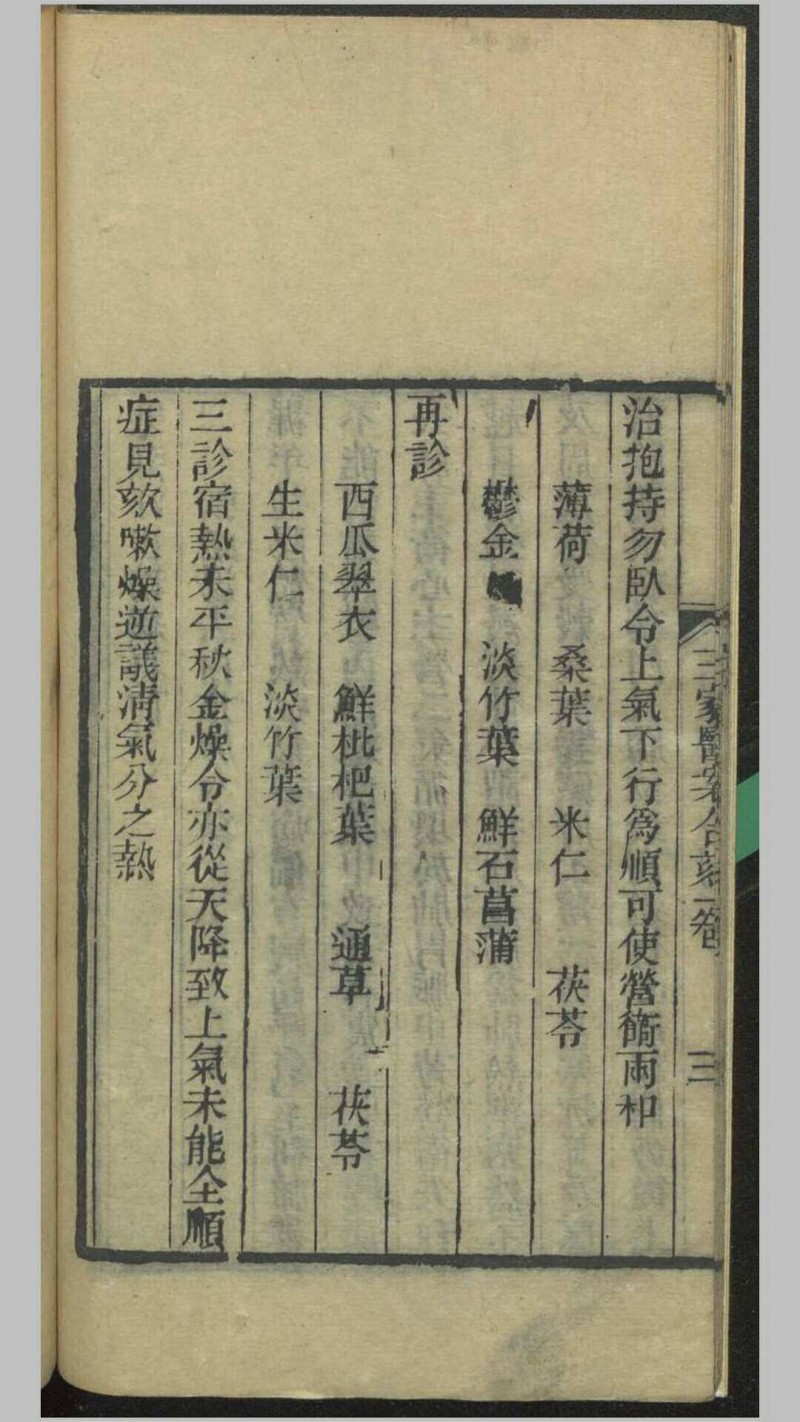 三家醫案合刻一卷 三
治抱持勿臥令上氣下行爲順可使營衞兩和
薄荷 桑葉 米仁 茯苓
鬱金 淡竹葉 鮮石菖蒲
再診
西瓜翠衣 鮮枇杷葉 通草 茯苓
生米仁 淡竹葉
三診宿熱未平秋金燥令亦從天降致上氣未能全順
症見欬嗽燥逆議清氣分之熱